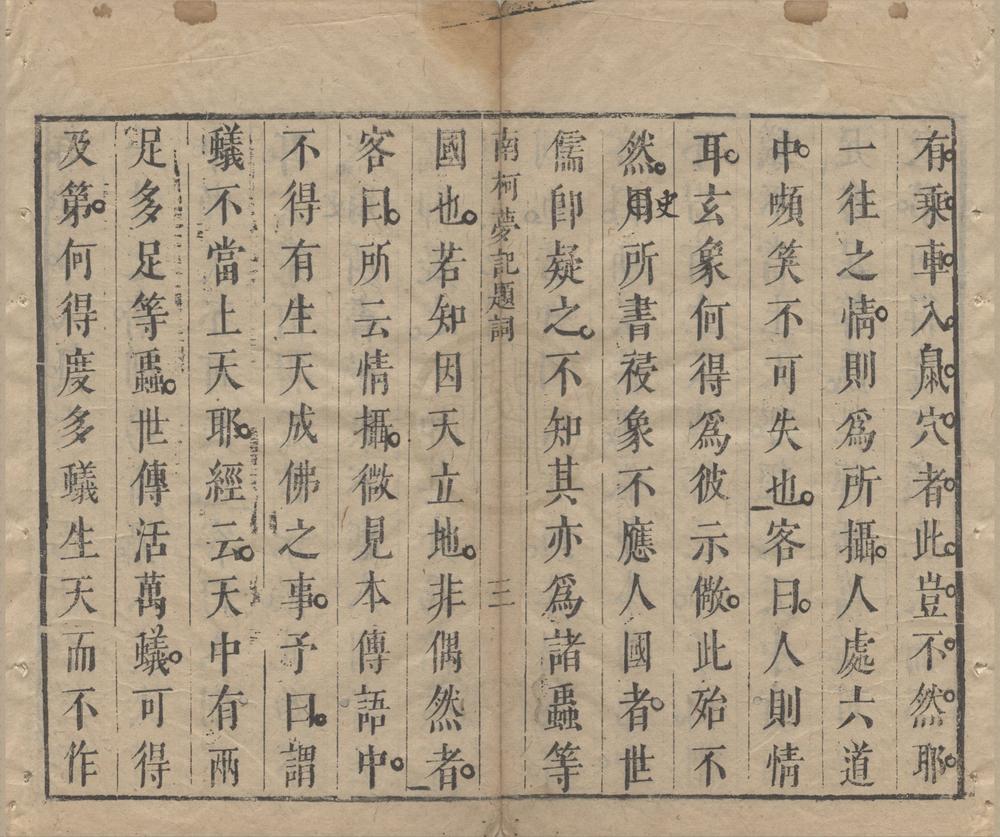 有乘車入鼠穴者此豈不然耶
一往之情則爲所攝人處六道
中嚬笑不可失也客曰人則情
耳玄象何得爲彼示儆此殆不
然凡所書祲象不應人國者世
史
儒即疑之不知其亦爲諸蟲等
南柯夢記題詞 三
國也若知因天立地非偶然者
客曰所云情攝微見本傳語中
不得有生天成佛之事予曰謂
蟻不當上天耶經云天中有兩
足多足等蟲世傳活萬蟻可得
及第何得度多蟻生天而不作